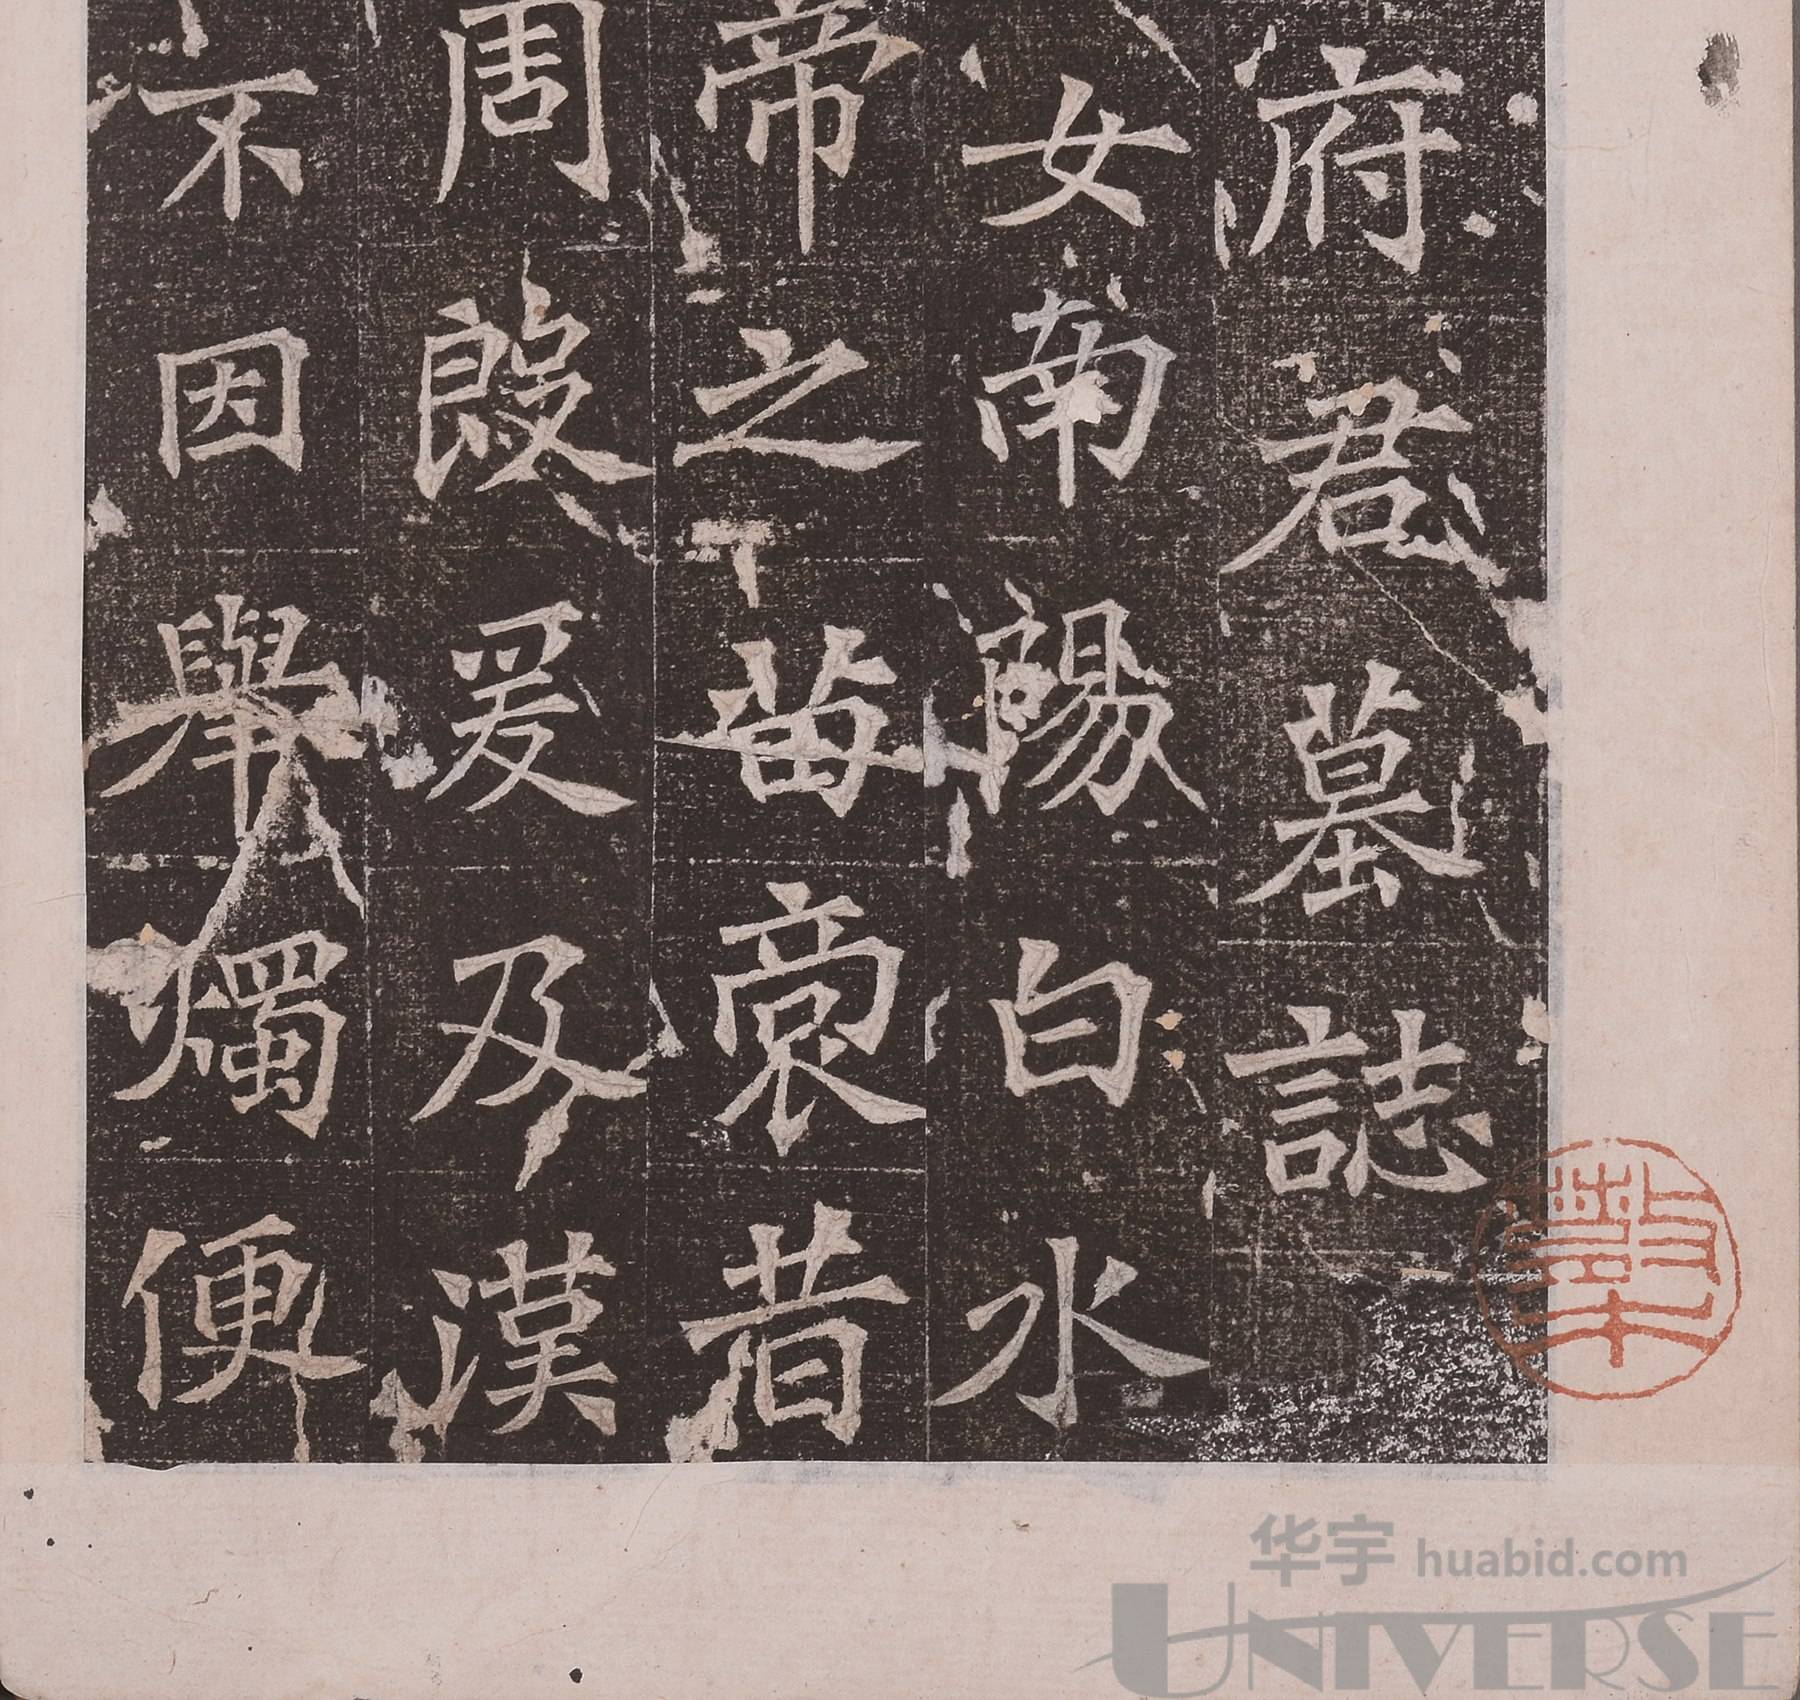 府君墓誌
女南陽白水
帝之苗裔昔
周殷爰及漢
不因舉燭便
华宇 huabid.com
UNIVERSE